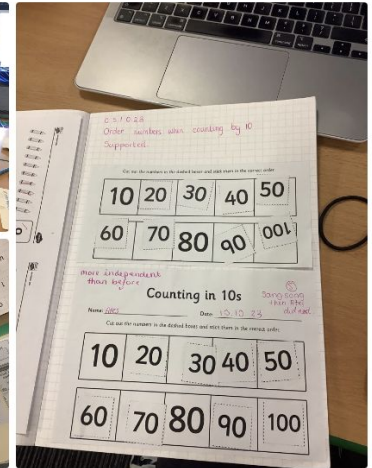 Order numbers when counting by 10
Supported.
Cut out the numbers in the dashed boxes and stick them in the correct order.
10 20 30 40 50
60 70 80 90 100
more independent
than before
Counting in 10s
Sang song
Name: Date: 10.10.23
did end
Cut out the numbers in the dashed boxes and stick them in the correct order.
10 20 30 40 50
60 70 80 90 100